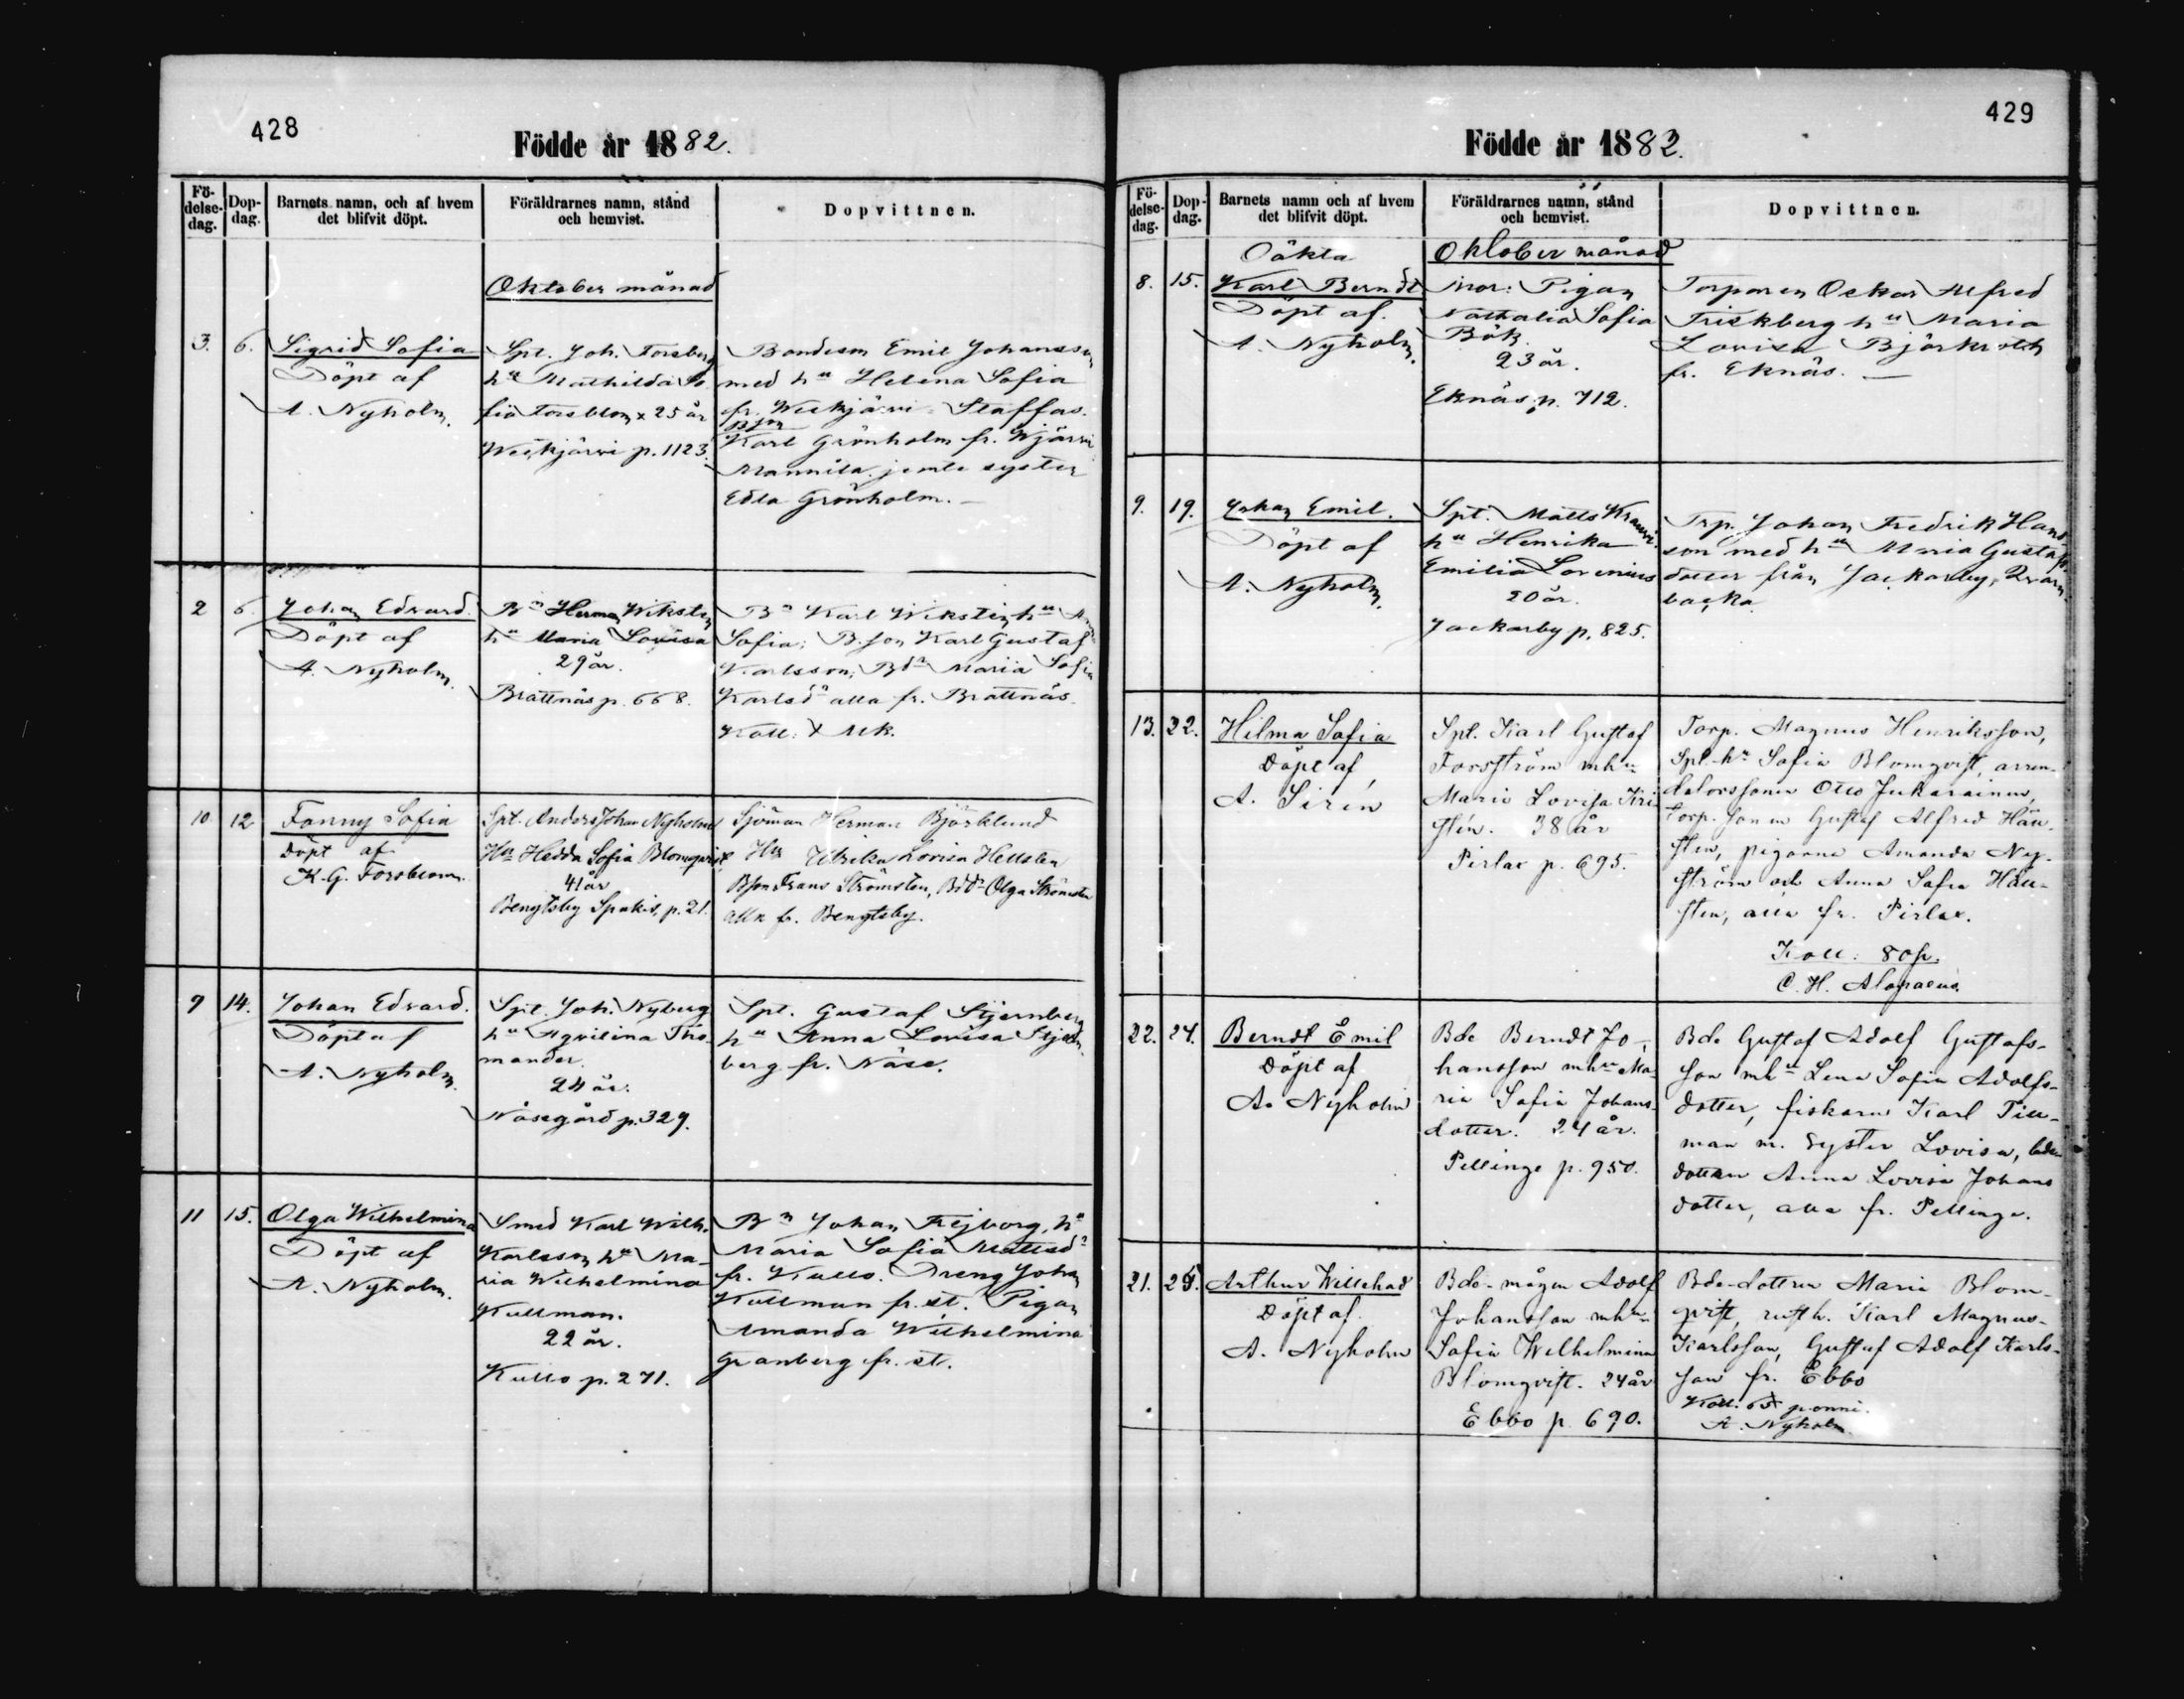 428
Födde år 1882.
Fö-
delse-
dag.
Dop-
dag.
Barnets namn, och af hvem
det blifvit döpt.
Föräldrarnes namn, stånd
och hemvist.
Dopvittnen.
Oktober månad
3.
6.
Sigrid Sofia
Döpt af
A. Nyholm.
Spt. Joh. Forsberg
hu Mathilda So-
fia Forsblom x 25 år
Weckjärvi p. 1123.
Bondeson Emil Johansson
med hu Helena Sofia
fr. Weckjärvi Staffas.
Bson
Karl Grönholm fr. Wjärvi
Mannila jemte syster
Edla Grönholm. —
2
6.
Johan Edvard.
Döpt af
A. Nyholm.
Bn Herman Wikstén
hu Maria Lovisa
29 år.
Brattnäs p. 668.
Bn Karl Wikstén hu
Sofia; B.son Karl Gustaf
Karlsson; Bdr Maria Sofia
Karlsdr alla fr. Brattnäs.
Koll:
10
12
Fanny Sofia
Döpt af
K. G. Forsblom.
Spt. Anders Johan Nyholm
Hu Hedda Sofia Blomqvist,
41 år
Bengtsby Spakis, p. 21.
Sjöman Herman Björklund
Hu Ulrika Lovisa Hellsten
Bson Frans Strömsten, Bdr Olga Strömsten
alla fr. Bengtsby.
9
14.
Johan Edvard.
Döpt af
A. Nyholm.
Spt. Joh. Nyberg
hu Agvilina Tho-
mander.
24 år.
Näsegård p. 329.
Spt. Gustaf Stjernberg
hu Anna Lovisa Stjern-
berg fr. Näse.
11
15.
Olga Wilhelmina
Döpt af
A. Nyholm.
Smed Karl Wilh.
Karlsson hu Ma-
ria Wilhelmina
Kullman.
22 år.
Kullo p. 271.
Bn Johan Frejborg, hu
Maria Sofia Mattsdr
fr. Kullo. Dreng Johan
Kullman fr. st. Pigan
Amanda Wilhelmina
Granberg fr. st.
429
Födde år 1882.
Fö-
delse-
dag.
Dop-
dag.
Barnets namn och af hvem
det blifvit döpt.
Föräldrarnes namn, stånd
och hemvist.
Dopvittnen.
Oktober månad
8.
15.
Oäkta
Karl Berndt
Döpt af.
A. Nyholm.
Mor: Pigan
Nathalia Sofia
Bök.
23 år.
Eknäs p. 712.
Torparen Oskar Alfred
Friskberg hu Maria
Lovisa
fr. Eknäs. —
9.
19.
Johan Emil.
Döpt af
A. Nyholm.
Spt. Matts
hu Henrika
Emilia Lovenius
20 år.
Jackarby p. 825.
Trp. Johan Fredrik Hans-
son med hu Maria Gustafs-
dotter från Jackarby, Qvarn-
backa
13.
22.
Hilma Sofia
Döpt af
A. Sirén
Spt. Karl Gustaf
Forsström mhu
Maria Lovisa Kri-
stén. 38 år
Pirlax p. 695.
Torp. Magnus Henriksson,
Spl-hu Sofia Blomqvist, arren-
datorssonen Otto Jukarainen,
torp. sonen Gustaf Alfred Häll-
sten, pigorna Amanda Ny-
ström och Anna Sofia Häll-
sten, alla fr. Pirlax.
Koll: 80 p.
C. H. Alopaeus.
22.
24.
Berndt Emil
Döpt af
A. Nyholm
Bde Berndt Jo-
hansson mhu Ma-
ria Sofia Johans-
dotter. 24 år.
Pellinge p. 950.
Bde Gustaf Adolf Gustafs-
son mhu Lena Sofia Adolfs-
dotter, fiskaren Karl Till-
man m. syster Lovisa, bde-
dottern Anna Lovisa Johans
dotter, alla fr. Pellinge.
21.
25.
Arthur Willehad
Döpt af.
A. Nyholm
Bde-mågen Adolf
Johansson mhu
Sofia Wilhelmina
Blomqvist. 24 år
Ebbo p. 690.
Bde-dottren Maria Blom-
qvist, rusth. Karl Magnus-
Karlsson, Gustaf Adolf Karls-
son fr. Ebbo
Koll. 65 penni.
A. Nyholm